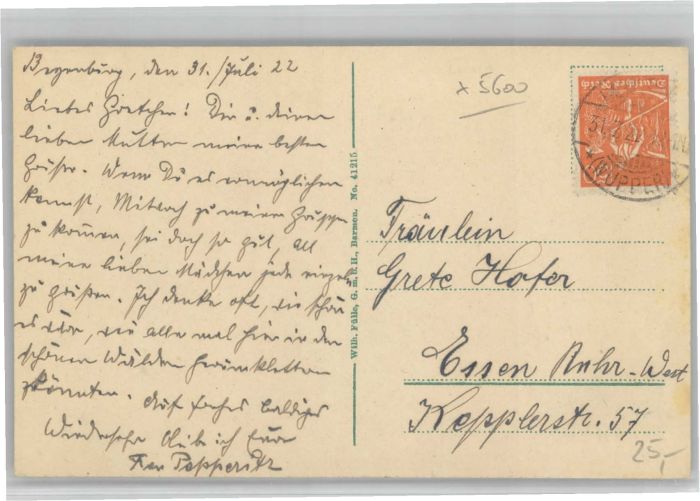 Beyenburg, den 31. Juli 22
Liebes Gretchen! Dir u. deiner
lieben Mutter meine besten
Grüße. Wenn Du es ermöglichen
kannst, Mittwoch zu meiner Gruppe
zu kommen, sei doch so gut, all
meine lieben Mädchen jede einzeln
zu grüßen. Ich denke oft, wie schön
es wär, wir alle mal hier in den
schönen Wäldern herumklettern
könnten. Auf frohes baldiges
Wiedersehn bleib ich Eure
Frau Pepperitz
Wilh. Fülle, G. m. b. H., Barmen. No. 41215
x 5600
Deutsches Reich
31.7.22
(WUPPER)
Fräulein
Grete Hofer
Essen Ruhr-West
Kepplerstr. 57
25,-